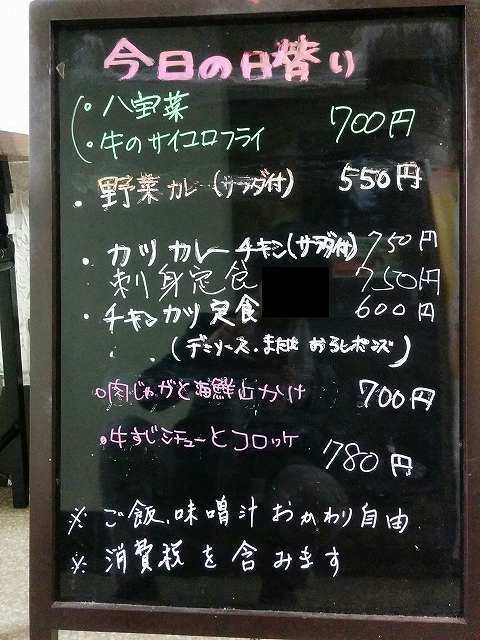 今日の日替り
・八宝菜
・牛のサイコロフライ 700円
・野菜カレー(サラダ付) 550円
・カツカレーチキン(サラダ付) 750円
刺身定食 750円
・チキンカツ定食 600円
(デミソース.または おろしポンズ)
・肉じゃがと海鮮山かけ 700円
・牛すじシチューとコロッケ 780円
※ ご飯、味噌汁おかわり自由
※ 消費税を含みます